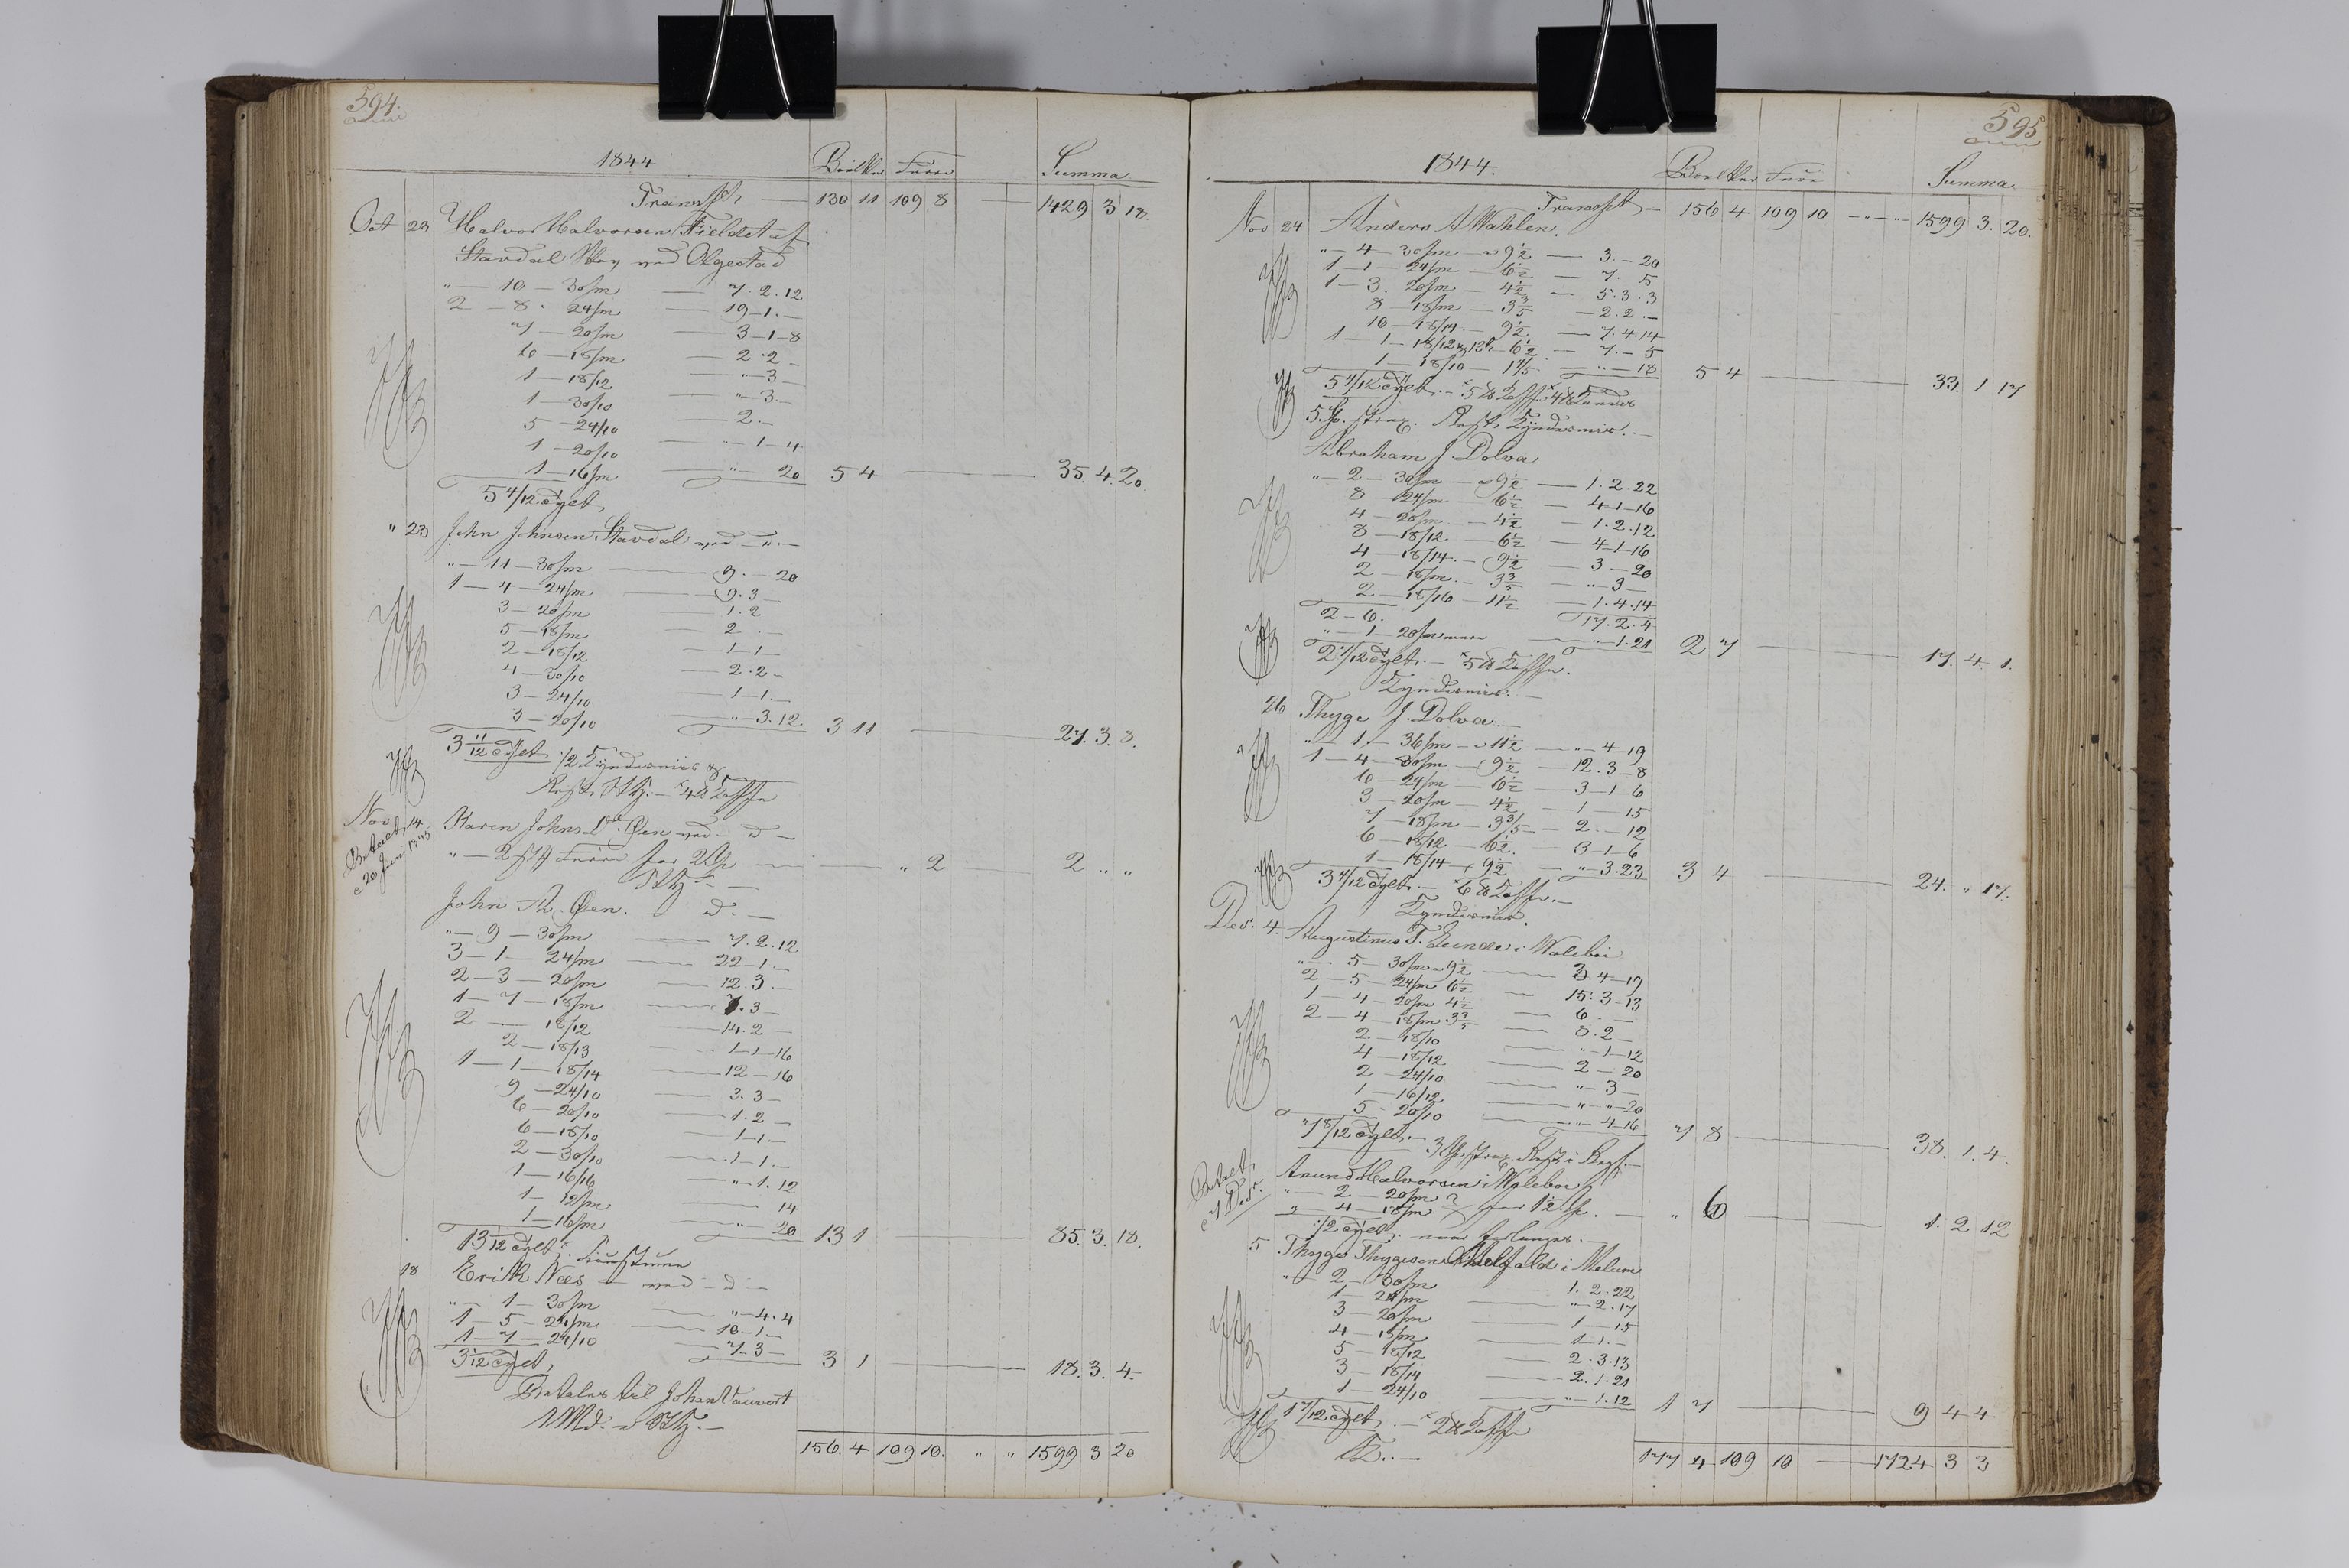 594.
1844 Summa
Transpt. — 130 11 109 8 — 1429 3 18
Oct 23 Halvor Halvorsen Fieldet af
Stavdal ved Algestad
" — 10 — 30/m — 7. 2. 12
2 — 8 - 24/m — 19 - 1. —
7 — 20/m — 3 - 1 - 8
6 — 18/m — 2 - 2 -
1 — 18/12 — " - 3 -
1 — 30/10 — " - 3. -
5 — 24/10 — 2. -
1 — 20/10 — " - 1 - 4
1 — 16/m — " 20 5 4 — 35. 4. 20.
5 4/12 Tylt,
" 23 John Johnsen Stavdal ved — d. —
" — 11 — 30/m — 9. - 20
1 — 4 — 24/m — 9. 3 -
3 — 20/m — 1. 2
5 — 18/m — 2 . -
2 — 18/12 — 1 - 1 -
4 — 30/10 — 2. 2 -
3 — 24/10 — 1 - 1. -
3 — 20/10 — " - 3. 12 3 11 — 27. 3. 8.
3 11/12 Tylt 1/2
4
Nov 14 Karen Johns Dtr Øen ved — d —
Betalt,
20 Juni 1845
" — 2 Furu for 2 — " 2 2 " "
John Th. Øen. d. —
" — 9 — 30/m — 7. 2. 12
3 — 1 — 24/m — 22 - 1. -
2 — 3 — 20/m — 12. 3. -
1 — 7 — 18/m — 7. 3 -
2 — 18/12 — 14. 2 -
2 — 18/13 — 1 - 1 - 16
1 — 1 — 18/14 — 12 - 16
9 — 24/10 — 3. 3 -
6 — 20/10 — 1. 2 -
6 — 18/10 — 1 - 1. -
2 — 30/10 — 1 - 1. -
1 — 16/16 — " - 1. 12
1 — 12/m — 14
1 — 16/m — " 20 13 1 — 85. 3. 18.
13 1/12 Tylt,
18 Erik Næs — ved — d —
" — 1 — 30/m — " - 4. 4
1 — 5 — 24/m — 10 - 1 -
1 — 7 — 24/10 — 7. 3 -
3 1/12 Tylt, 3 1 — 18. 3. 4.
Betales til Johan
156. 4 109 10. " " 1599 3 20
595
1844. Summa
Transpt — 156 4 109 10 — " — " 1599 3. 20.
Nov 24 Anders A Wahlen.
" — 4 — 30/m — a 9 1/2 — 3. - 20
1 — 1 — 24/m — 6 1/2 — 7. 5
1 — 3. 20/m — 4 1/2 — 5. 3. 3
8 — 18/m — 3 3/5 — 2. 2. -
10 — 18/14. — 9 1/2 — 7. 4. 14
1 — 1 — 18/12 6 1/2 — 7. - 5
1 — 18/10 — 1 4/5 — " - 18 5 4 — 33. 1 17
5 4/12 Tylt. — 5
5 strax. Rest
Abraham J. Dolva
" — 2 — 30/m — a 9 1/2 — 1. 2. 22
8 — 24/m — 6 1/2 — 4 - 1 - 16
4 — 20/m — 4 1/2 — 1. 2. 12
8 — 18/12 — 6 1/2 — 4 - 1 - 16
4 — 18/14. — 9 1/2 — 3 - 20
2 — 18/m. — 3 3/5 — " 3 -
2 — 18/16 — 11 1/2 — 1. 4. 14
2 — 6. 17. 2. 4
" — 1 — 20/m — " - 1. 21 2 7 — 17. 4. 1.
2 7/12 Tylt. — 5
26 Thyge J. Dolva —
" — 1 — 36/m — a 11 1/2 — " - 4 - 19
1 — 4 — 30/m — 9 1/2 — 12. 3 - 8
6 — 24/m — 6 1/2 — 3 - 1 - 6
3 — 20/m — 4 1/2 — 1 - 15
7 — 18/m — 3 3/5 — 2. - 12
6 — 18/12 — 6 1/2. — 3 - 1 - 6
1 — 18/14 — 9 1/2 — " - 3. 23 3 4 — 24. " 17.
3 4/12 Tylt. — 6
Des. 4. Augustinus T. Lunde i Walebøe
" — 5 — 30/m a 9 1/2 — 3. 4 - 17
2 — 5 — 24/m 6 1/2 — 15. 3 - 13
1 — 4 — 20/m 4 1/2 — 6 . -
2 — 4 — 18/m 3 3/5 — 8. 2 -
2 — 18/10 — " - 1 - 12
4 — 18/12 — 2 - 20
2 — 24/10 — " - 3 -
1 — 16/12 — " - " - 20
5 — 20/10 — " - 4 - 16 7 8 — 38. 1. 4.
7 8/12 Tylt. — 3 strax Rest i
Betalt,
7 Des.
Amund Halvorsen i Walebøe
" — 2 — 20/m
" — 4 — 18/m for 1 1/2 — " 6 — 1. 2 12
1/2 Tylt, naar forlanges. —
5 Thyge Thygesen i Melum
" — 2 — 30/m — 1. 2. 22
1 — 24/m — " - 2. 17
3 — 20/m — 1 - 15
4 — 18/m — 1 - 1. -
5 — 18/12 — 2. 3. 13
3 — 18/14 — 2. 1. 21
1 — 24/10 — " - 1. 12 1 7 — 9 4 4
1 7/12 Tylt. — 2
177 4 109 10 — 1724 3 3